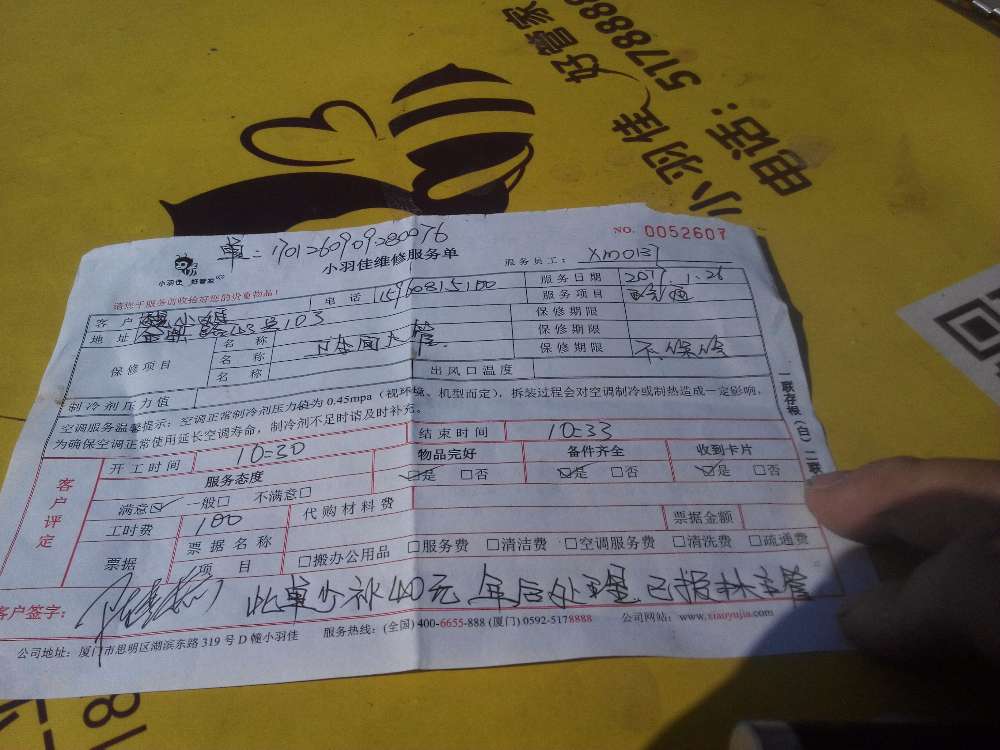 好管家
小羽佳
电话:
NO. 0052607
单:170126090928007​6
小羽佳维修服务单
服务员工: XM0137
小羽佳 好管家
请您于服务前收拾好您的贵重物品!
电话
服务日期 2017 1.26
客户
服务项目
地址 103
保修期限
保修项目 名称
保修期限
名称
保修期限 不保修
名称
出风口温度
制冷剂压力值
空调服务温馨提示:空调正常制冷剂压力值为 0.45mpa(视环境、机型而定),拆装过程会对空调制冷或制热造成一定影响,
为确保空调正常使用延长空调寿命,制冷剂不足时请及时补充。
开工时间 10:30 结束时间 10:33
客户评定
服务态度 物品完好 备件齐全 收到卡片
满意☑ 一般□ 不满意□ ☑是 □否 ☑是 □否 ☑是 □否
工时费 100 代购材料费
票据 票据名称 票据金额
项目 □搬办公用品 □服务费 □清洁费 □空调服务费 □清洗费 □疏通费
客户签字: 此单少补40元 年后处理 已报林主管
公司地址:厦门市思明区湖滨东路 319 号 D 幢小羽佳 服务热线:(全国) 400-6655-888 (厦门) 0592-5178888 公司网站:www.xiaoyujia.com
一联存根(白)二联